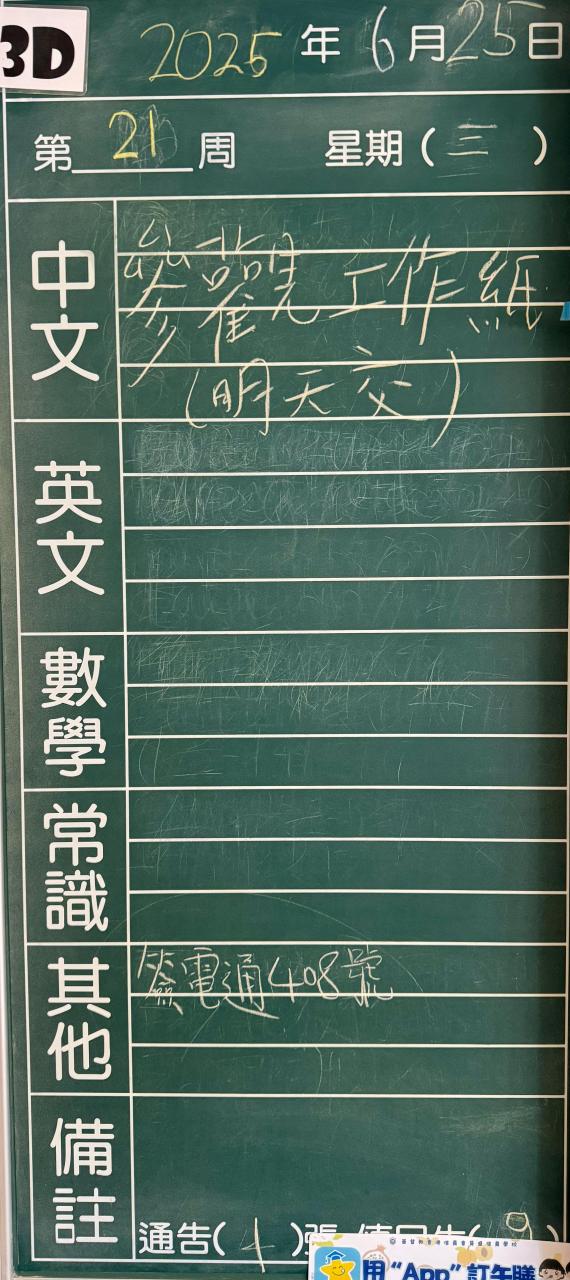 3D
2025年6月25日
第21周 星期(三)
中文
參觀工作紙
(明天交)
英文
數學
常識
其他
簽電通408號
備註
通告(1)張
用“App”訂午膳